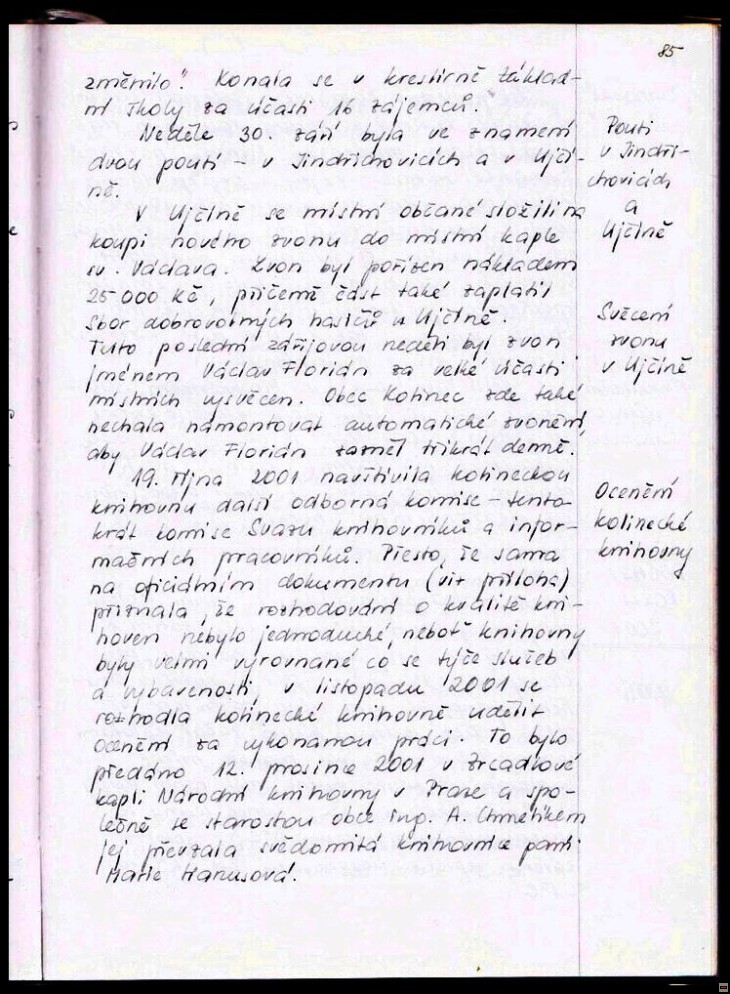 85
změnilo". Konala se v kreslírně základ-
ní školy za účasti 16 zájemců.
Neděle 30. září byla ve znamení
dvou poutí - v Jindřichovicích a v Ujčí-
ně.
V Ujčíně se místní občané složili na
koupi nového zvonu do místní kaple
sv. Václava. Zvon byl pořízen nákladem
25 000 Kč, přičemž část také zaplatil
Sbor dobrovolných hasičů v Ujčíně.
Tuto poslední zářijovou neděli byl zvon
jménem Václav Florián za velké účasti
místních vysvěcen. Obec Kolinec zde také
nechala namontovat automatické zvonění,
aby Václav Florián zazněl třikrát denně.
19. října 2001 navštívila kolineckou
knihovnu další odborná komise - tento-
krát komise Svazu knihovníků a infor-
mačních pracovníků. Přesto, že sama
na oficiálním dokumentu (viz příloha)
přiznala, že rozhodování o kvalitě kni-
hoven nebylo jednoduché, neboť knihovny
byly velmi vyrovnané co se týče služeb
a vybavenosti, v listopadu 2001 se
rozhodla kolinecké knihovně udělit
ocenění za vykonanou práci. To bylo
předáno 12. prosince 2001 v Zrcadlové
kapli Národní knihovny v Praze a spo-
lečně se starostou obce ing. A. Chmelíkem
jej převzala svědomitá knihovnice paní
Marie Hanusová.
Pouti
v Jindři-
chovicích
a
Ujčíně
Svěcení
zvonu
v Ujčíně
Ocenění
kolinecké
knihovny